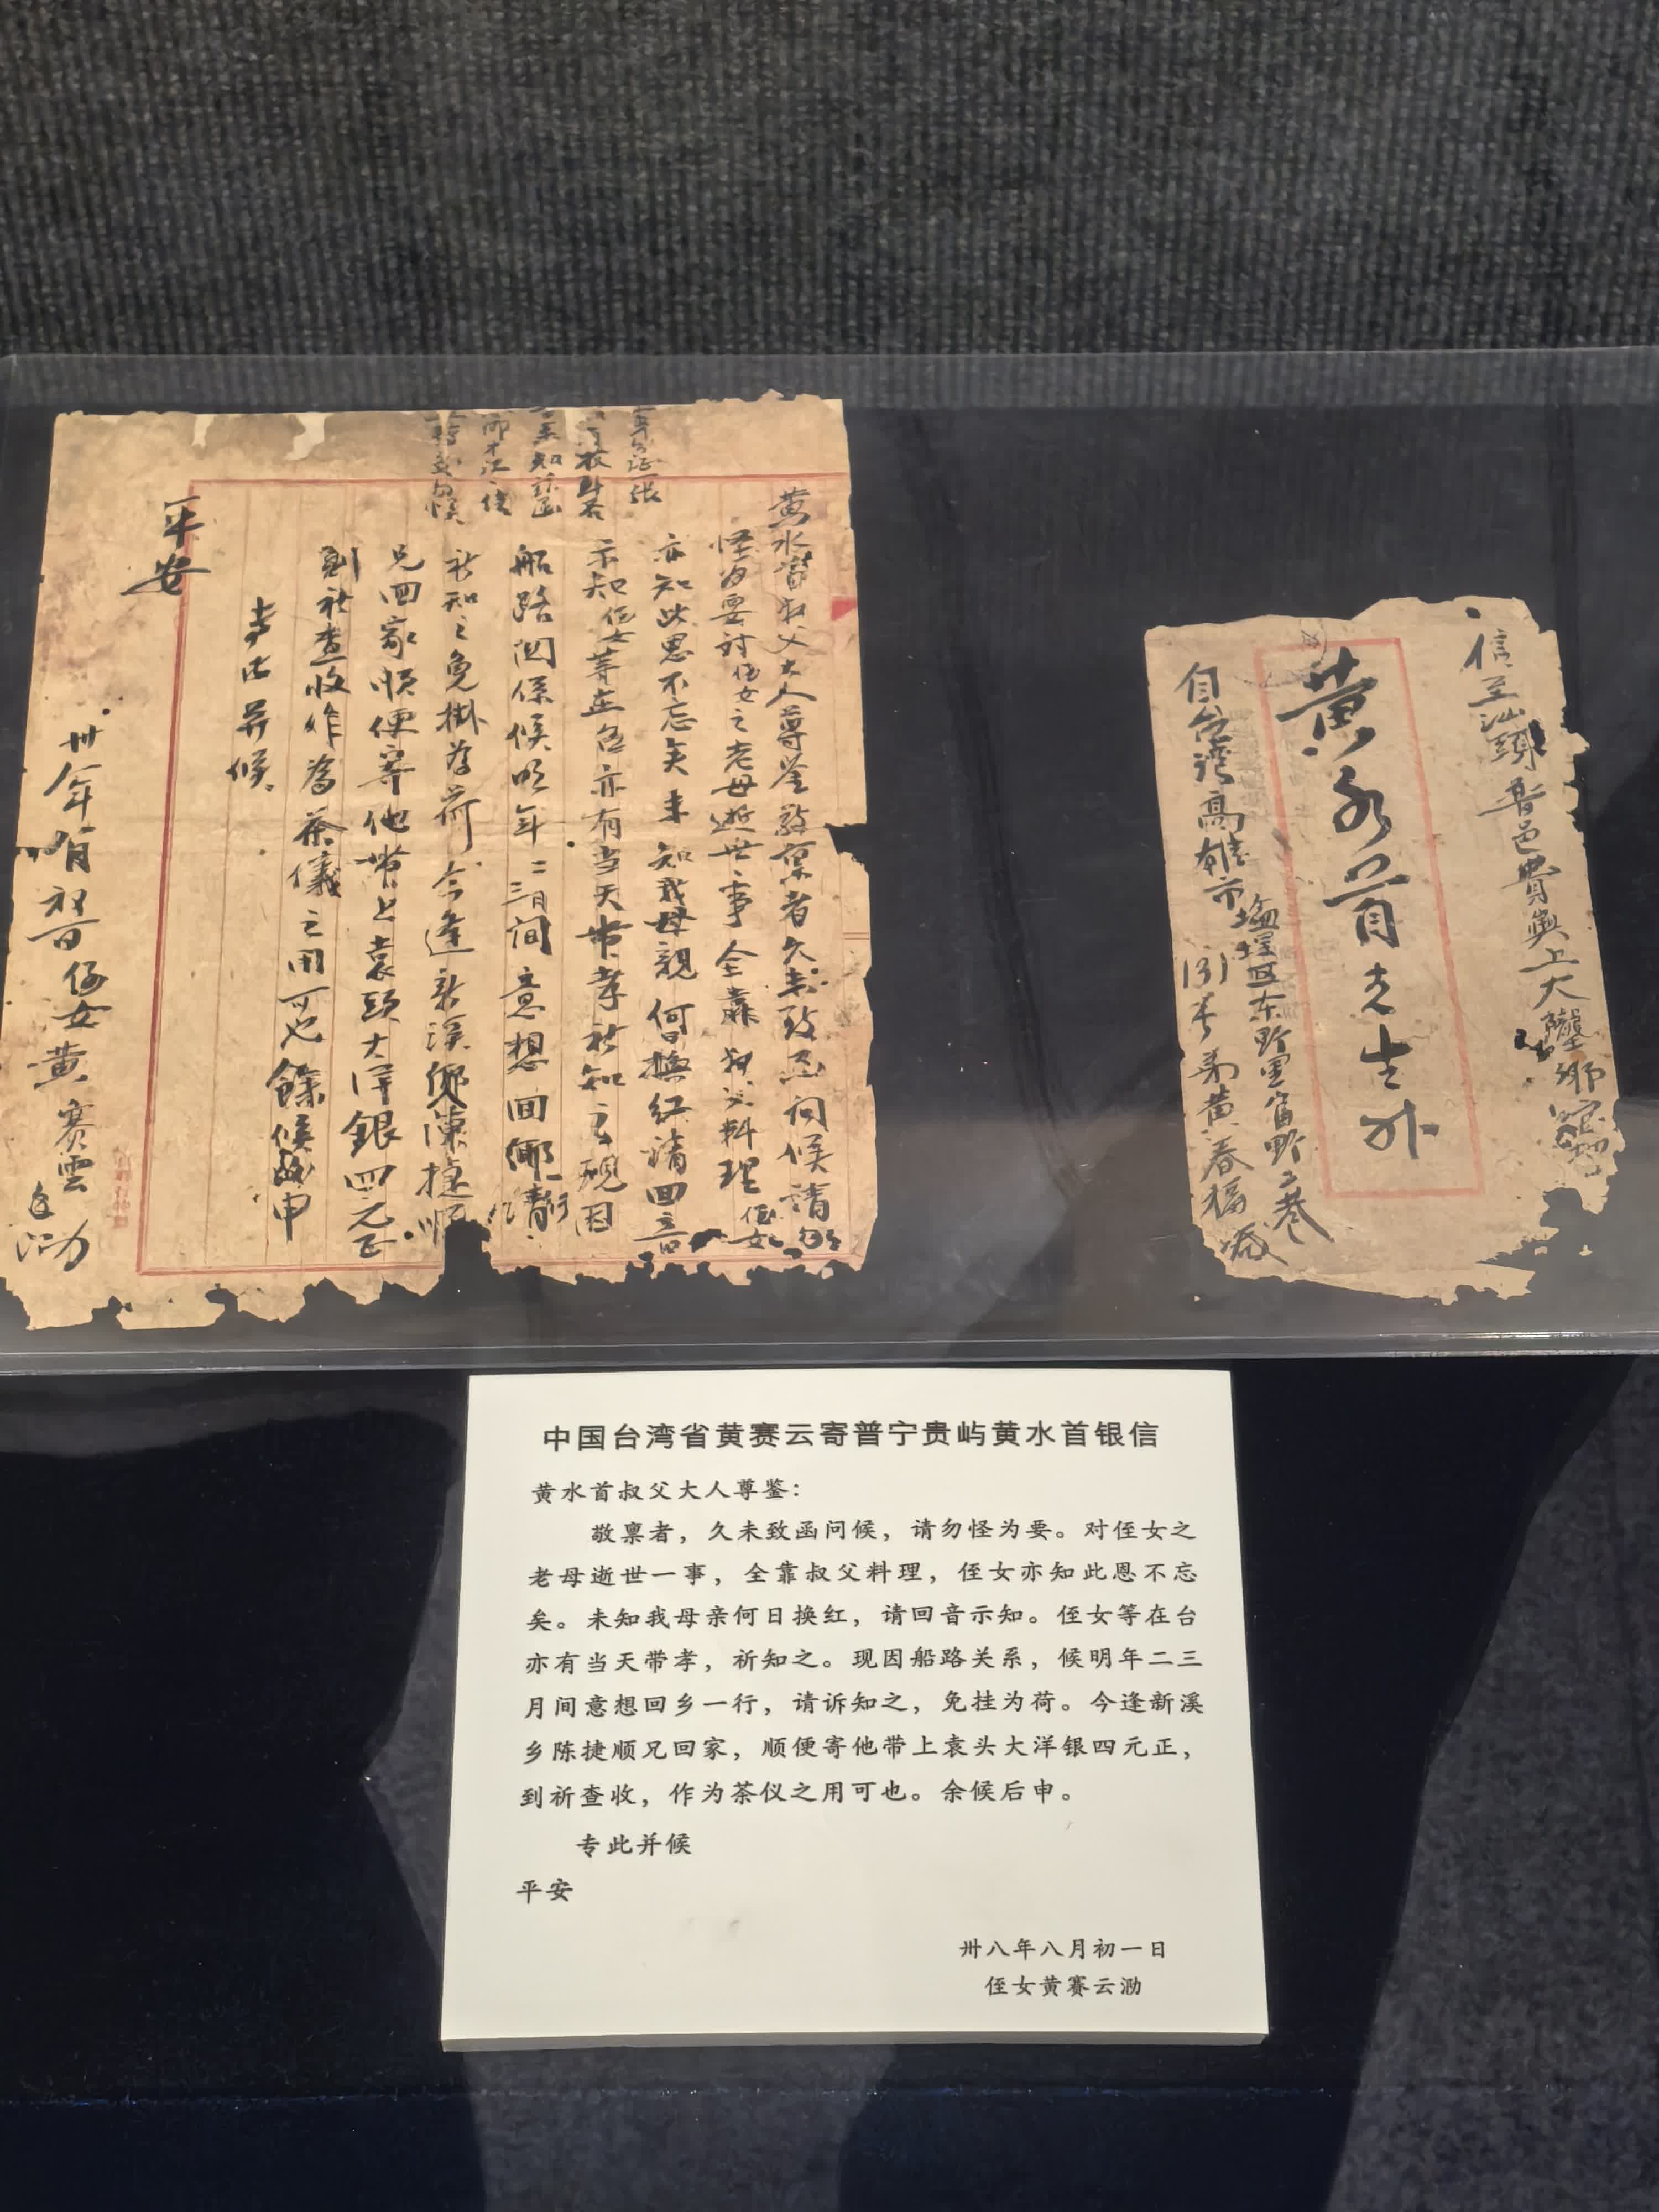 黄水首叔父大人尊鉴敬禀者久未致函问候請勿
怪为要对侄女之老母逝世一事全靠叔父料理侄女
亦知此恩不忘矣未知我母親何日換红請回音
示知侄女等在台亦有当天带孝祈知之现因
船路関係候明年二三月间意想回鄉一行請
祈知之免掛为荷今逢新溪鄉陳捷順
兄回家順便寄他带上袁頭大洋銀四元正
到祈查收作為茶儀之用可也餘候後申
专此并候
平安
卅八年八月初一日侄女黄赛雲
信至汕頭普邑貴嶼上大隴鄉
黄水首先生外
自台湾高雄市塩埕区
131号弟黄春福緘
中国台湾省黄赛云寄普宁贵屿黄水首银信
黄水首叔父大人尊鉴：
敬禀者，久未致函问候，请勿怪为要。对侄女之
老母逝世一事，全靠叔父料理，侄女亦知此恩不忘
矣。未知我母亲何日换红，请回音示知。侄女等在台
亦有当天带孝，祈知之。现因船路关系，候明年二三
月间意想回乡一行，请诉知之，免挂为荷。今逢新溪
乡陈捷顺兄回家，顺便寄他带上袁头大洋银四元正，
到祈查收，作为茶仪之用可也。余候后申。
专此并候
平安
卅八年八月初一日
侄女黄赛云泐